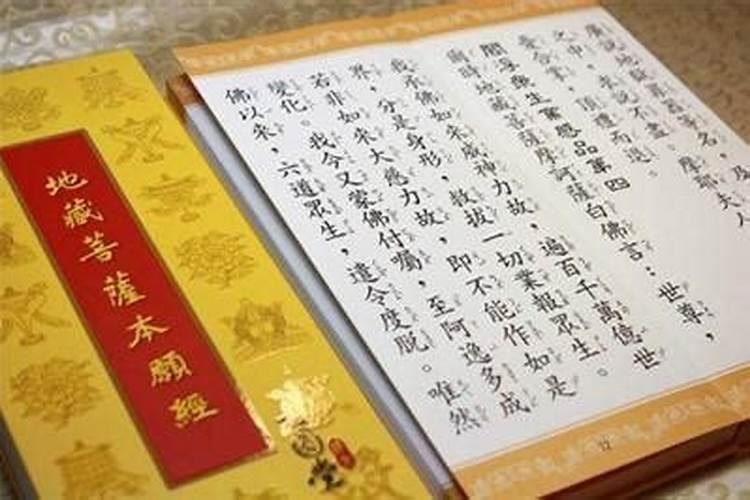 地藏菩薩本願經
廣說地獄罪器等名，及
之中，求說不盡。摩耶夫人
愁憂合掌，頂禮而退。
閻浮眾生業感品第四
爾時地藏菩薩摩訶薩白佛言：世尊，
我承佛如來威神力故，遍百千萬億世
界，分是身形，救拔一切業報眾生。
若非如來大慈力故，即不能作如是
變化。我今又蒙佛付囑，至阿逸多成
佛以來，六道眾生，遣令度脫。唯然